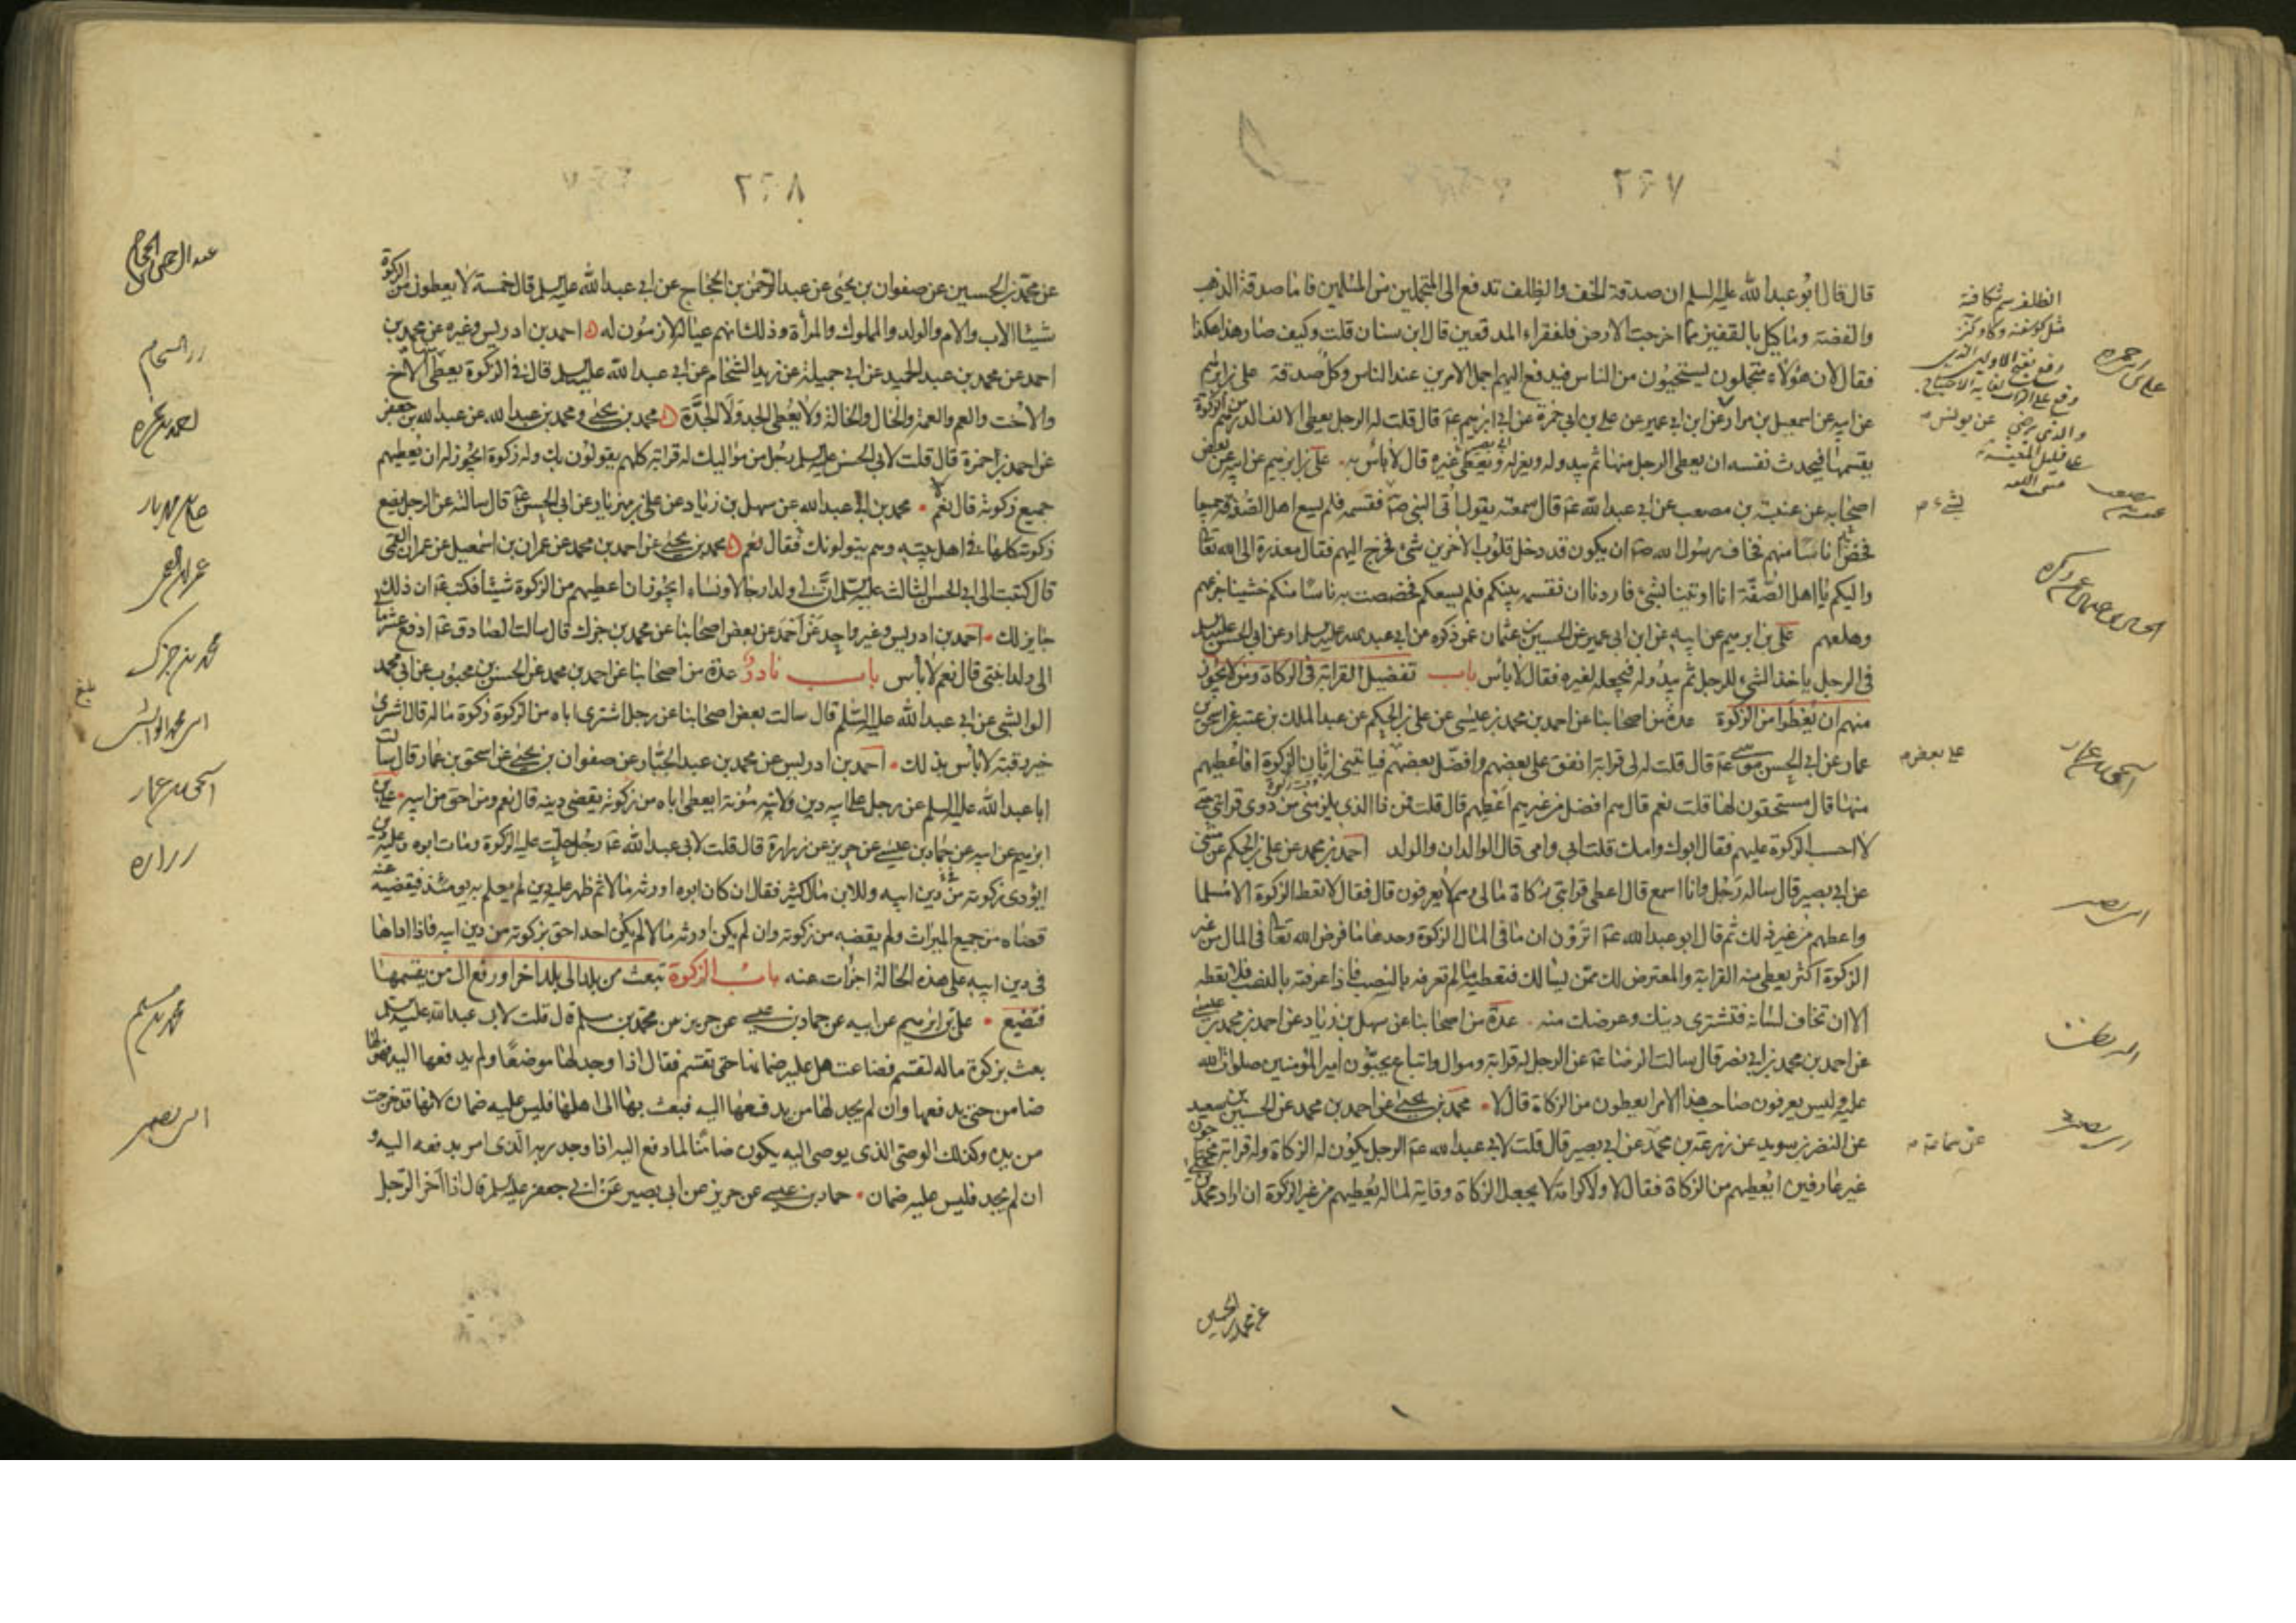 ٢٦٧
قال قال ابو عبد الله عليه السلم ان صدقة الخف والظلف تدفع الى المتجملين من المسلمين فاما صدقة الذهب
والفضة وما كيل بالقفيز مما اخرجت الارض فلفقراء المدقعين قال ابن سنان قلت وكيف صار هذا هكذا
فقال لان هؤلاء متجملون يستحيون من الناس فيدفع اليهم اجمل الامرين عند الناس وكل صدقة علي بن ابرهيم
عن ابيه عن اسمعيل بن مرار عن ابن ابي عمير عن علي بن ابي حمزة عن ابي ابرهيم عم قال قلت له الرجل يعطي الالف الدرهم من الزكوة
يقسمها فيحدث نفسه ان يعطي الرجل منها ثم يبدو له ويعزله ويعطي غيره قال لا بأس به علي بن ابرهيم عن ابيه عن بعض
اصحابه عن عنبسة بن مصعب عن ابي عبد الله عم قال سمعته يقول اتى النبي صم فقسمه فلم يسع اهل الصفة جميعا
فخص اناسا منهم فخاف رسول الله صم ان يكون قد دخل قلوب الاخرين شئ فخرج اليهم فقال معذرة الى الله تعا
واليكم يا اهل الصفة انا اوتينا بشئ فاردنا ان نقسمه بينكم فلم يسعكم فخصصت به ناسا منكم خشينا جزعهم
وهلعهم علي بن ابرهيم عن ابيه عن ابن ابي عمير عن الحسين بن عثمان عمن ذكره عن ابي عبد الله عليه السلم او عن ابي الحسن عليه السلم
في الرجل ياخذ الشئ للرجل ثم يبدو له فيجعله لغيره فقال لا بأس باب تفضيل القرابة في الزكاة ومن لا يجوز
منهم ان يعطوا من الزكوة عدة من اصحابنا عن احمد بن محمد بن عيسى عن علي بن الحكم عن عبد الملك بن عتبة عن اسحق بن
عمار عن ابي الحسن موسى عم قال قلت له لي قرابة انفق على بعضهم وافضل بعضهم فياتيني ابان الزكوة افاعطيهم
منها قال مستحقون لها قلت نعم قال هم افضل من غيرهم اعطهم قال قلت فمن ذا الذي يلزمني من ذوي قرابتي حتى
لا احسب الزكوة عليهم فقال ابوك وامك قلت ابي وامي قال الوالدان والولد احمد بن محمد عن علي بن الحكم عن مثنى
عن ابي بصير قال ساله رجل وانا اسمع قال اعطي قرابتي زكاة مالي وهم لا يعرفون قال فقال لا تعط الزكوة الا مسلما
واعطهم من غير ذلك ثم قال ابو عبد الله عم اترون ان ما في المال الزكوة وحدها ما فرض الله تعا في المال من غير
الزكوة اكثر يعطى منه القرابة والمعترض لك ممن يسالك فتعطيه ما لم تعرفه بالنصب فاذا عرفته بالنصب فلا تعطه
الا ان تخاف لسانه فتشتري دينك وعرضك منه عدة من اصحابنا عن سهل بن زياد عن احمد بن محمد بن عيسى
عن احمد بن محمد بن ابي نصر قال سالت الرضا عم عن الرجل له قرابة وموال واتباع يحبون امير المؤمنين صلوات الله
عليه وليس يعرفون صاحب هذا الامر ايعطون من الزكاة قال لا محمد بن يحيى عن احمد بن محمد عن الحسين بن سعيد
عن النضر بن سويد عن زرعة بن محمد عن ابي بصير قال قلت لابي عبد الله عم الرجل يكون له الزكاة وله قرابة محتاجون
غير عارفين ايعطيهم من الزكاة فقال لا ولا كرامة لا يجعل الزكاة وقاية لماله يعطيهم من غير الزكوة ان اراد محمد بن يحيى
عن محمد بن الحسين
علي بن ابي حمزة
عن يونس
بشئ
اسحق بن عمار
على بعض
ابي بصير
ابي بصير
عن سماعة
٢٦٨
عن محمد بن الحسين عن صفوان بن يحيى عن عبد الرحمن بن الحجاج عن ابي عبد الله عليه السلم قال خمسة لا يعطون من الزكوة
شيئا الاب والام والولد والمملوك والمرأة وذلك انهم عياله لازمون له احمد بن ادريس وغيره عن محمد بن
احمد عن محمد بن عبد الحميد عن ابي جميلة عن زيد الشحام عن ابي عبد الله عليه السلم قال في الزكوة يعطى منها الاخ
والاخت والعم والعمة والخال والخالة ولا يعطى الجد ولا الجدة محمد بن يحيى ومحمد بن عبد الله عن عبد الله بن جعفر
عن احمد بن حمزة قال قلت لابي الحسن عليه السلم رجل من مواليك له قرابة كلهم يقولون بك وله زكوة ايجوز له ان يعطيهم
جميع زكوته قال نعم محمد بن ابي عبد الله عن سهل بن زياد عن علي بن مهزيار عن ابي الحسن عم قال سالته عن الرجل يضع
زكوته كلها في اهل بيته وهم يتولونك فقال نعم محمد بن يحيى عن احمد بن محمد عن عمران بن اسمعيل عن عمران القمي
قال كتبت الى ابي الحسن الثالث عليه السلم ان لي ولدا رجالا ونساء ايجوز ان اعطيهم من الزكوة شيئا فكتب عم ان ذلك
جايز لك احمد بن ادريس وغير واحد عن احمد عن بعض اصحابنا عن محمد بن جزك قال سالت الصادق عم ادفع عشر مالي
الى ولد ابنتي قال نعم لا بأس باب نادر عدة من اصحابنا عن احمد بن محمد عن الحسن بن محبوب عن ابي محمد
الوابشي عن ابي عبد الله عليه السلم قال سالت بعض اصحابنا عن رجل اشترى اباه من الزكوة زكوة ماله قال اشترى
خير رقبة لا بأس بذلك احمد بن ادريس عن محمد بن عبد الجبار عن صفوان بن يحيى عن اسحق بن عمار قال سالت
ابا عبد الله عليه السلم عن رجل على ابيه دين ولابيه مؤنة ايعطي اباه من زكوته يقضي دينه قال نعم ومن احق من ابيه علي بن
ابرهيم عن ابيه عن حماد بن عيسى عن حريز عن زرارة قال قلت لابي عبد الله عم رجل حلت عليه الزكوة ومات ابوه وعليه دين
ايؤدي زكوته في دين ابيه وللابن مال كثير فقال ان كان ابوه اورثه مالا ثم ظهر عليه دين لم يعلم به يومئذ فيقضيه عنه
قضاه من جميع الميراث ولم يقضه من زكوته وان لم يكن اورثه مالا لم يكن احد احق بزكوته من دين ابيه فاذا اداها
في دين ابيه على هذه الحالة اجزأت عنه باب الزكوة تبعث من بلد الى بلد اخر او تدفع الى من يقسمها
فتضيع علي بن ابرهيم عن ابيه عن حماد بن عيسى عن حريز عن محمد بن مسلم قال قلت لابي عبد الله عليه السلم
بعث بزكوة ماله لتقسم فضاعت هل عليه ضمانها حتى تقسم فقال اذا وجد لها موضعا ولم يدفعها اليه فهو لها
ضامن حتى يدفعها وان لم يجد لها من يدفعها اليه فبعث بها الى اهلها فليس عليه ضمان لانها قد خرجت
من يده وكذلك الوصي الذي يوصى اليه يكون ضامنا لما دفع اليه اذا وجد ربه الذي امر بدفعه اليه و
ان لم يجد فليس عليه ضمان حماد بن عيسى عن حريز عن ابي بصير عن ابي جعفر عليه السلم قال اذا اخر الرجل
عبد الرحمن بن الحجاج
زيد الشحام
احمد بن حمزة
علي بن مهزيار
عمران القمي
محمد بن جزك
ابي محمد الوابشي
اسحق بن عمار
زرارة
محمد بن مسلم
ابي بصير